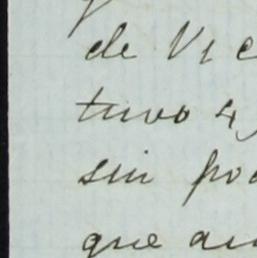 de Vic
tuvo 4
sin po
que au